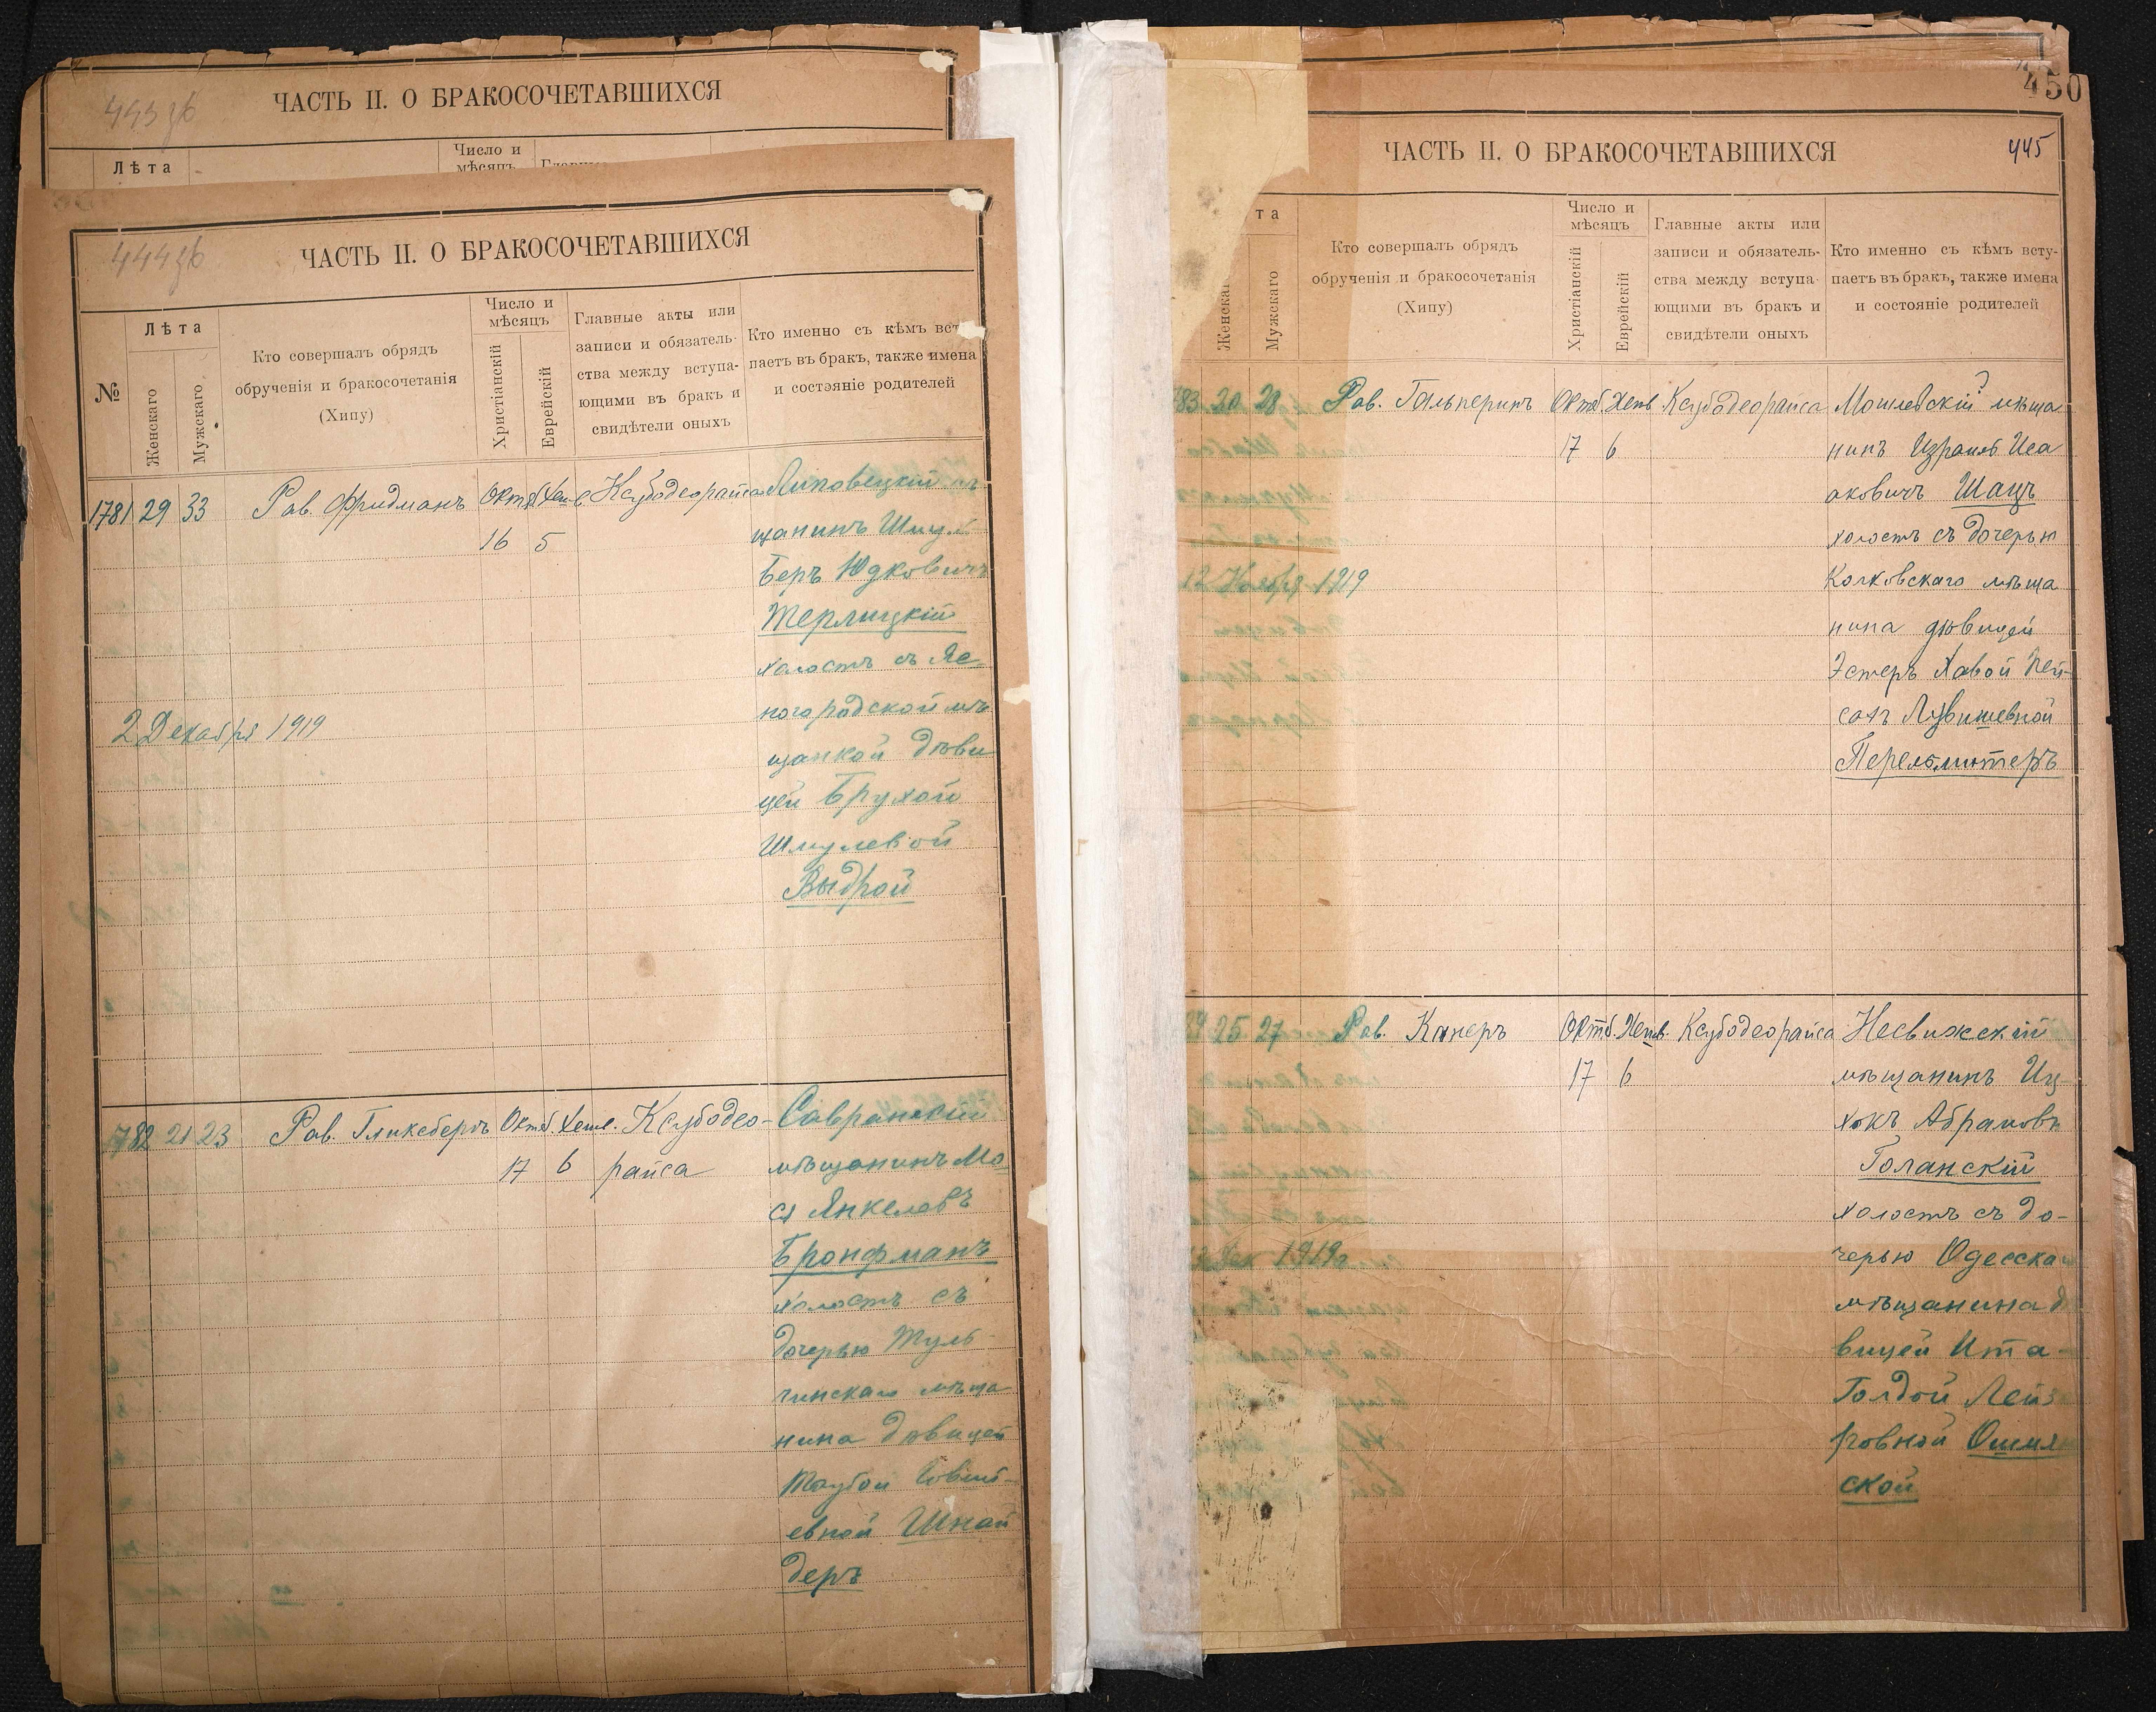 443 об
ЧАСТЬ II. О БРАКОСОЧЕТАВШИХСЯ
Лѣта
Число и
мѣсяцъ
444 об
ЧАСТЬ II. О БРАКОСОЧЕТАВШИХСЯ
№
Лѣта
Женскаго
Мужскаго
Кто совершалъ обрядъ
обрученія и бракосочетанія
(Хипу)
Число и
мѣсяцъ
Христіанскій
Еврейскій
Главные акты или
записи и обязатель-
ства между вступа-
ющими въ бракъ и
свидѣтели оныхъ
Кто именно съ кѣмъ вст
паетъ въ бракъ, также имена
и состояніе родителей
1781 29 33 Рав. Фридманъ Октб Хешв Ксубодеорайса Липовецкій мѣ
16 5 щанинъ Шмул
Беръ Юдковичъ
Терлицкій
холостъ съ Яс
ногородской мѣ
2 Декабря 1919
щанкой дѣви
цей Брухой
Шмулевой
Выдрой
1782 21 23 Рав. Гликсбергъ Октб. Хешв. Ксубодео- Савранскій
17 6 райса мѣщанинъ Мо
ся Янкелевъ
Бронфманъ
холостъ съ
дочерью Туль-
чинскаго мѣща
нина дѣвицей
Таубой Товій-
евной Шнай
деръ
450
ЧАСТЬ II. О БРАКОСОЧЕТАВШИХСЯ
445
та
Женскаг
Мужскаго
Кто совершалъ обрядъ
обрученія и бракосочетанія
(Хипу)
Число и
мѣсяцъ
Христіанскій
Еврейскій
Главные акты или
записи и обязатель-
ства между вступа-
ющими въ бракъ и
свидѣтели оныхъ
Кто именно съ кѣмъ всту-
паетъ въ бракъ, также имена
и состояніе родителей
83 20 28 Рав. Гальперинъ Октб. Хешв Ксубодеорайса мѣща
17 6 нинъ Израиль Иса
аковичъ Шацъ
холостъ съ дочерью
Колковскаго мѣща
12 Ноября 1919
нина дѣвицей
Эстеръ Хавой Пей-
Перельмутеръ
84 25 27 Рав. Канеръ Октб. Хешв. Ксубодеорайса Несвижскій
17 6 мѣщанинъ Иц
хокъ Абрамовъ
Голанскій
холостъ съ до-
Дек 1919г
черью Одесска
мѣщанина д
вицей Ита-
Голдой Лейз
ровной Ошмя
ской